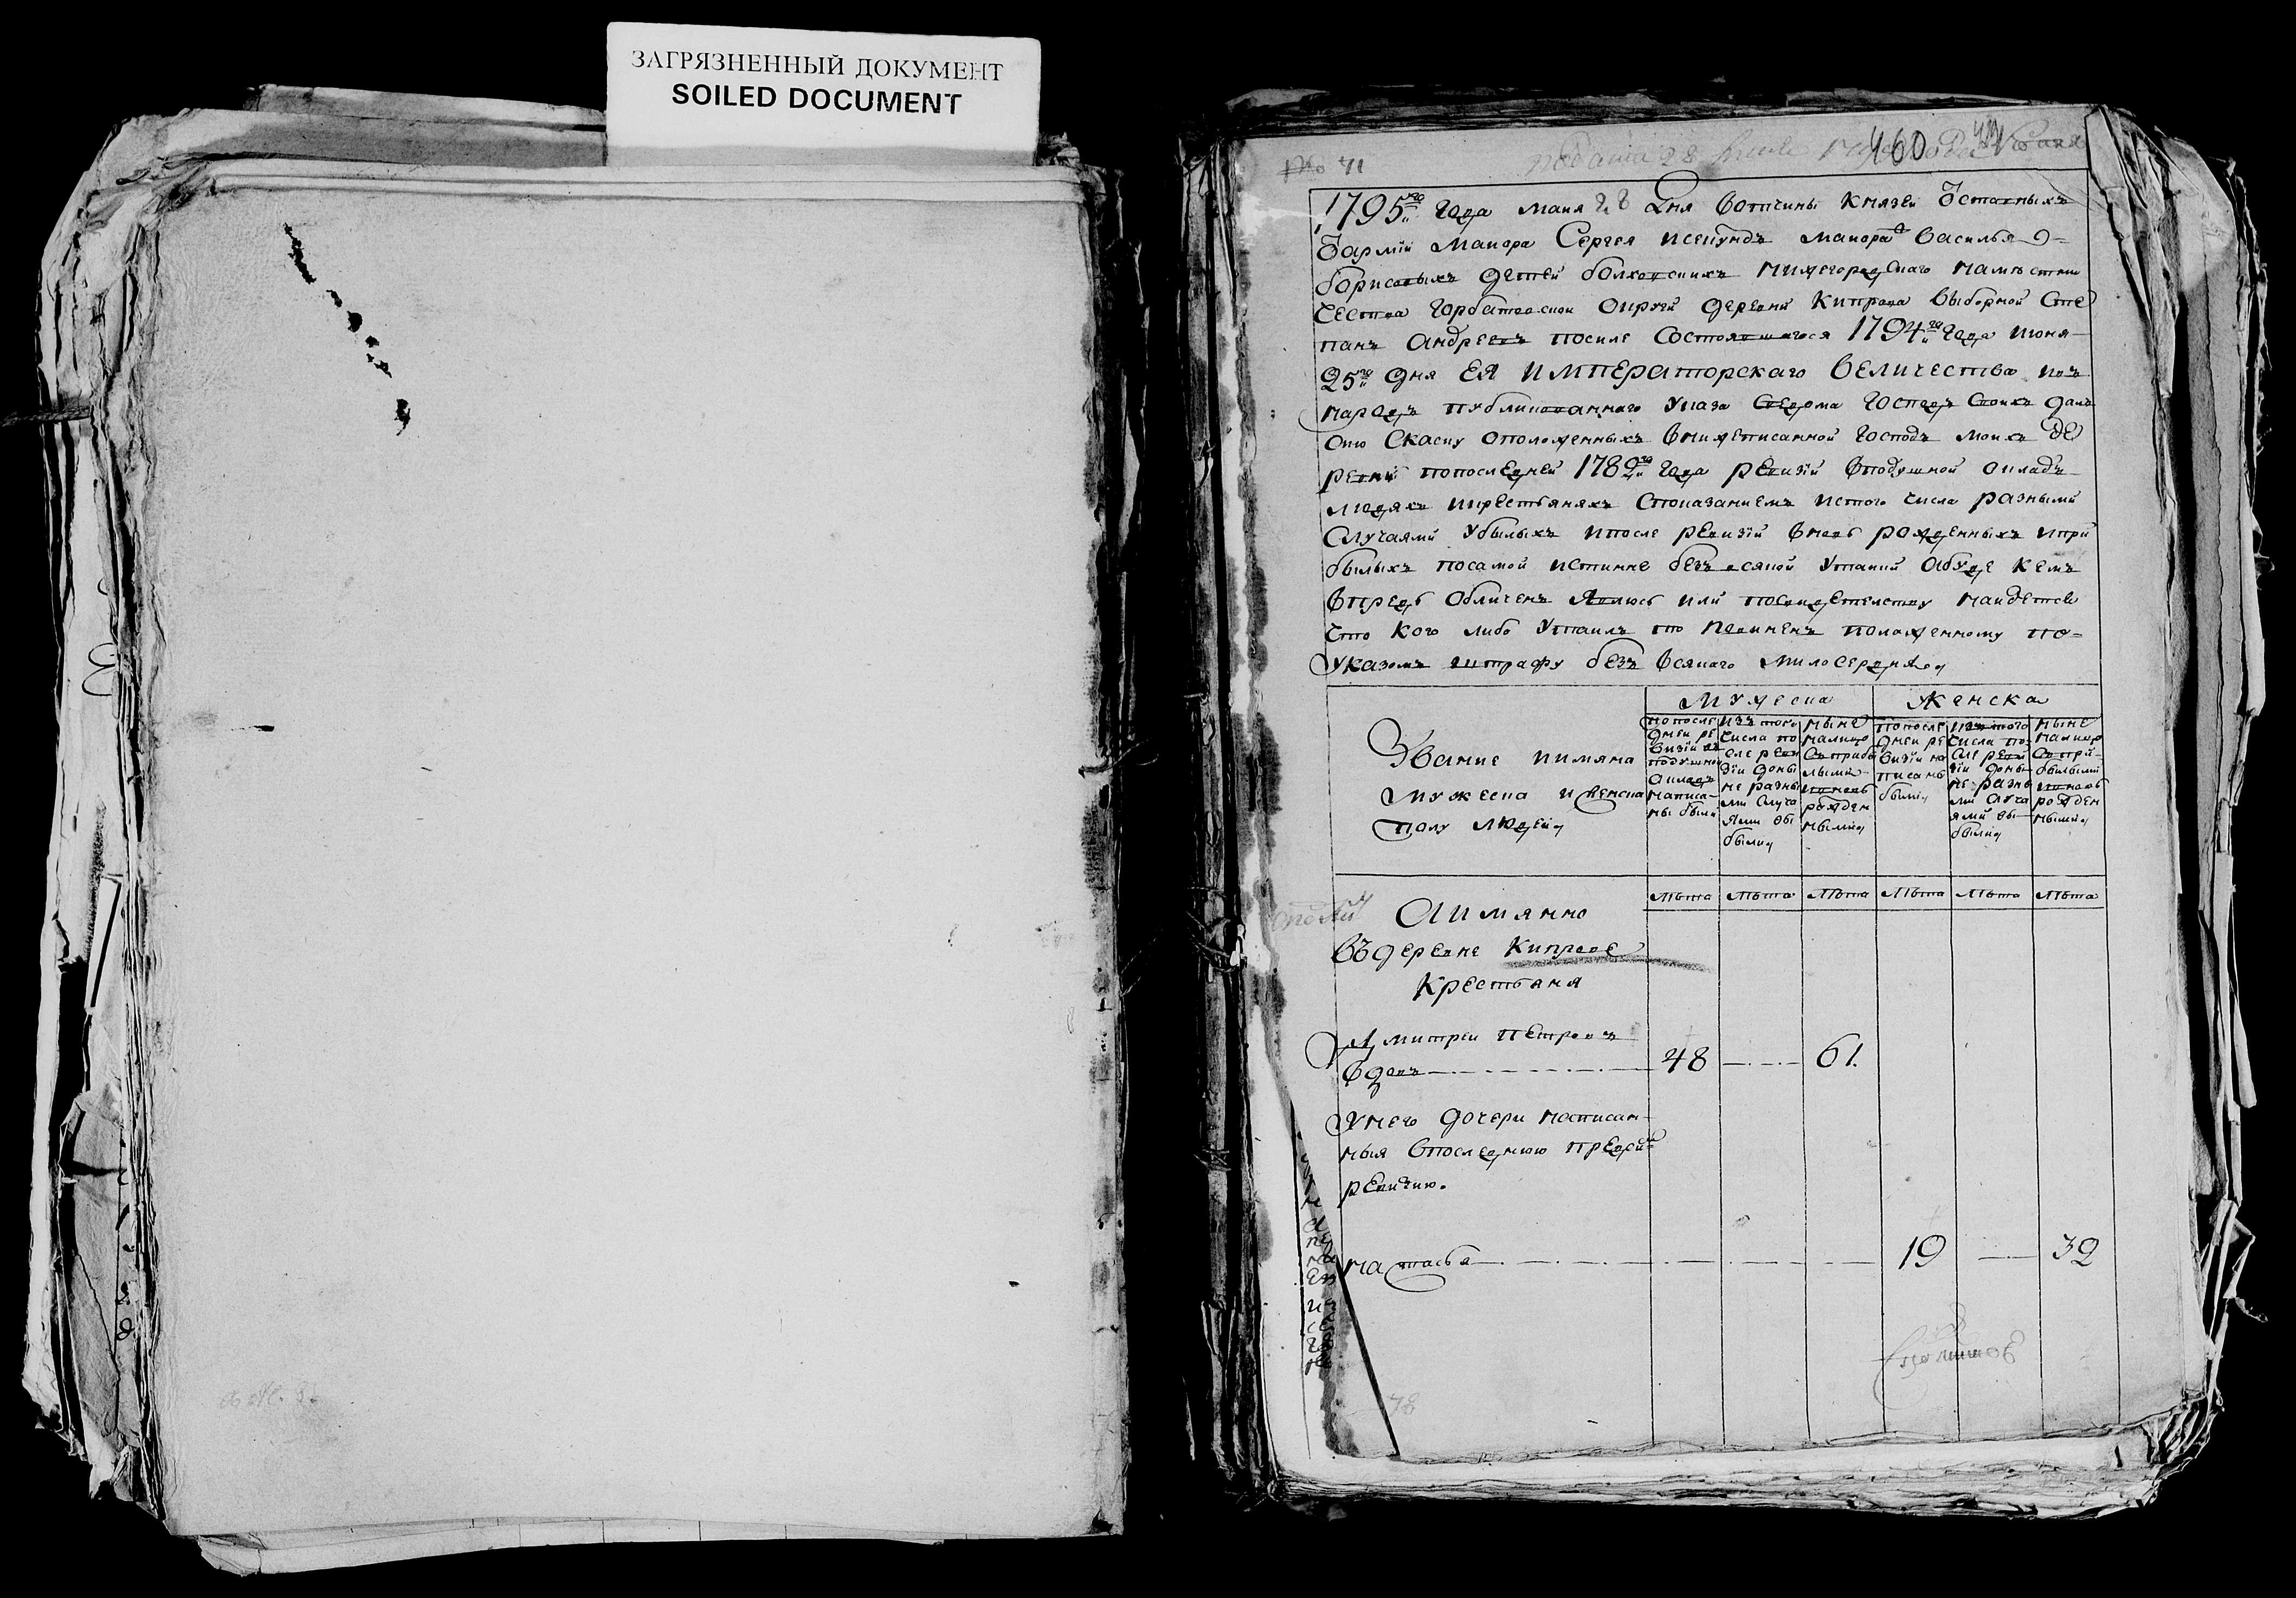 ЗАГРЯЗНЕННЫЙ ДОКУМЕНТ
SOILED DOCUMENT
460
1795го года маия 28 дня вотчины князей
маиора Сергея исекундъ маиора василья
борисовыхъ детей болховскихъ нижегородскаго намѣстни
чества горбатовской округи деревни Кипрева выборной Сте
панъ андреевъ посиле состоявшагося 1794го года июня
25го дня ЕЯ ИМПЕРаторскаго Величества изъ
народъ публикованнаго указа господъ своихъ далъ
сию скаску оположенныхъ внижеписанной господъ моихъ де
ревни попоследней 1782го года ревизïи вподушной окладъ
людяхъ икрестьянахъ споказаниемъ истого числа разными
случаями убылыхъ ипосле ревизïи вновь рожденныхъ ипри
былыхъ посамой истинне безъ всякой утаики абуде кемъ
впредь обличенъ явлюсь или посвидетелству найдетса
что кого либо утаилъ то повиненъ положенному по
указомъ штрафу безъ всякаго милосердия
Мужеска
Женска
Звание иимяна
мужеска иженска
полу людей
попосле
дней ре
визïи въ
подушной
окладъ
написа
ны были
изъ того
числа по
сле реви
зïи доны
не разны
ми случа
ями вы
были
ныне
налицо
съ прибы
лыми
ивновь
рожден
ными
попосле
дней ре
визïи на
писаны
были
изъ того
числа по
сле реви
зïи доны
не разны
ми случа
ями вы
были
ныне
налицо
съ при
былыми
ивновь
рожден
ными
лѣта лѣта лѣта лѣта лѣта лѣта
Аимянно
въ деревне Кипреве
Крестьяня
Дмитреи петровъ
вдовъ 48 61.
Унего дочери написан
ныя впоследнюю предъ сей
ревизию.
настасья 19 32